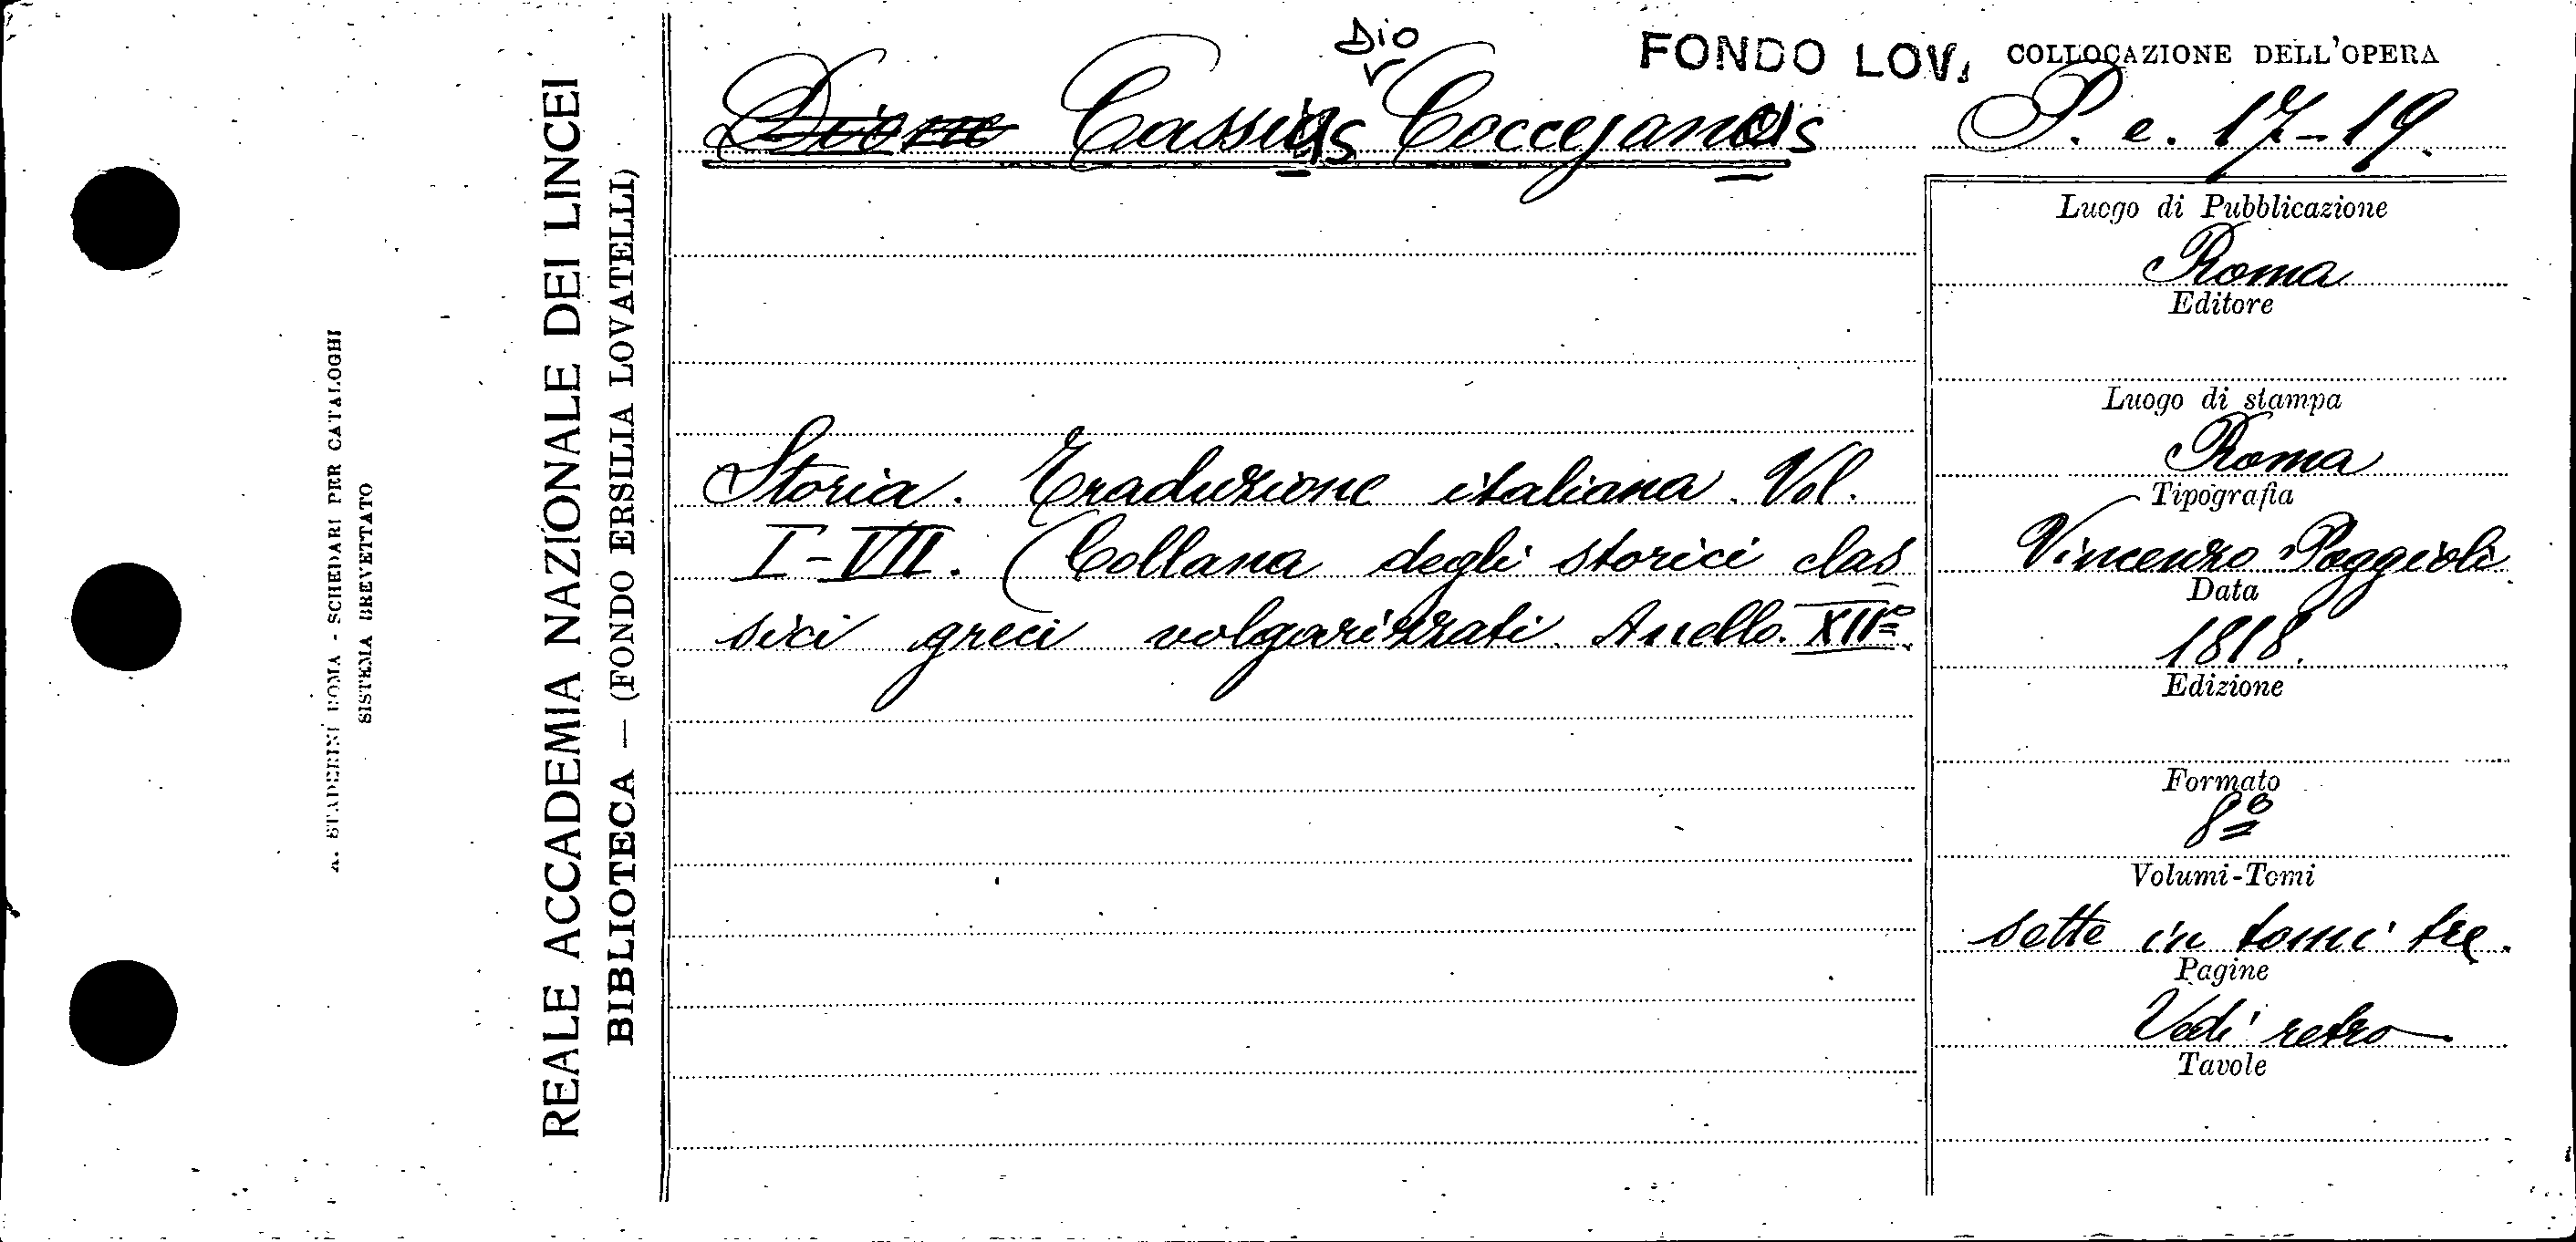 A. STADERINI ROMA - SCHEDARI PER CATALOGHI
SISTEMA BREVETTATO
REALE ACCADEMIA NAZIONALE DEI LINCEI
BIBLIOTECA — (FONDO ERSILIA LOVATELLI)
Dio
FONDO LOV.
Dione Cassius Coccejanus
COLLOCAZIONE DELL'OPERA
P. e. 17-19.
Storia. Traduzione italiana. Vol.
I-VII. (Collana degli storici clas
sici greci volgarizzati. Anello XIIº.
Luogo di Pubblicazione
Roma
Editore
Luogo di stampa
Roma
Tipografia
Vincenzo Poggioli
Data
1818.
Edizione
Formato
8º
Volumi-Tomi
sette in tomi tre.
Pagine
Vedi retro
Tavole